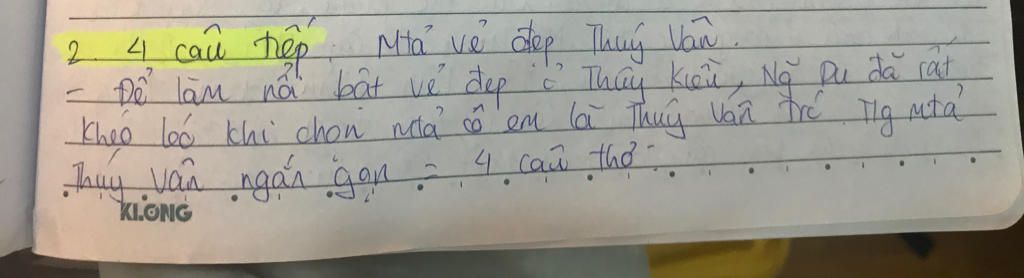 2. 4 câu tiếp: Mtả vẻ đẹp Thuý Vân.
- Để làm nổi bật vẻ đẹp ở Thúy Kiều, Ng Du đã rất
khéo léo khi chọn mtả cô em là Thuý Vân trc. Tg mtả
Thúy Vân ngắn gọn = 4 câu thơ.
KLONG